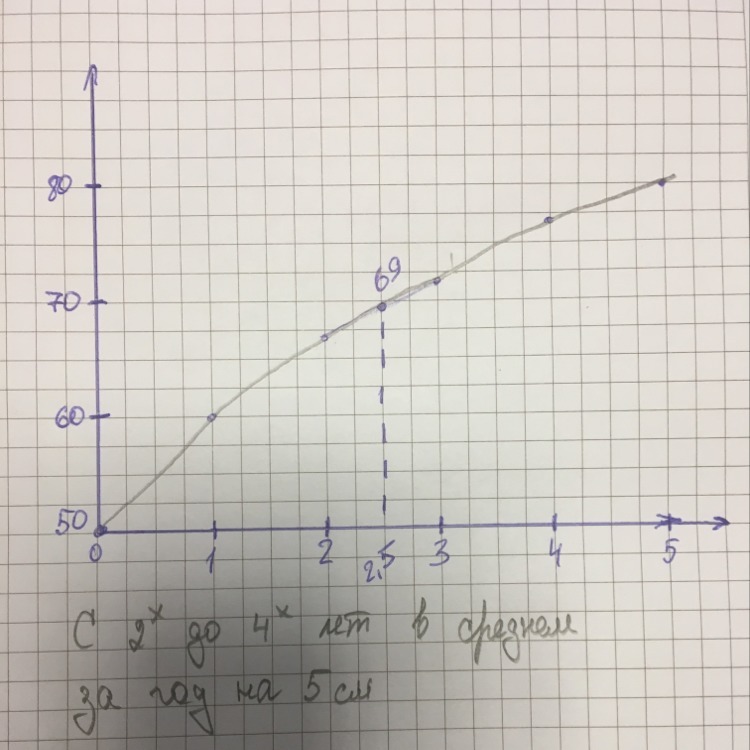 80
69
70
60
50
0 1 2 2,5 3 4 5
С 2х до 4х лет в среднем
за год на 5 см